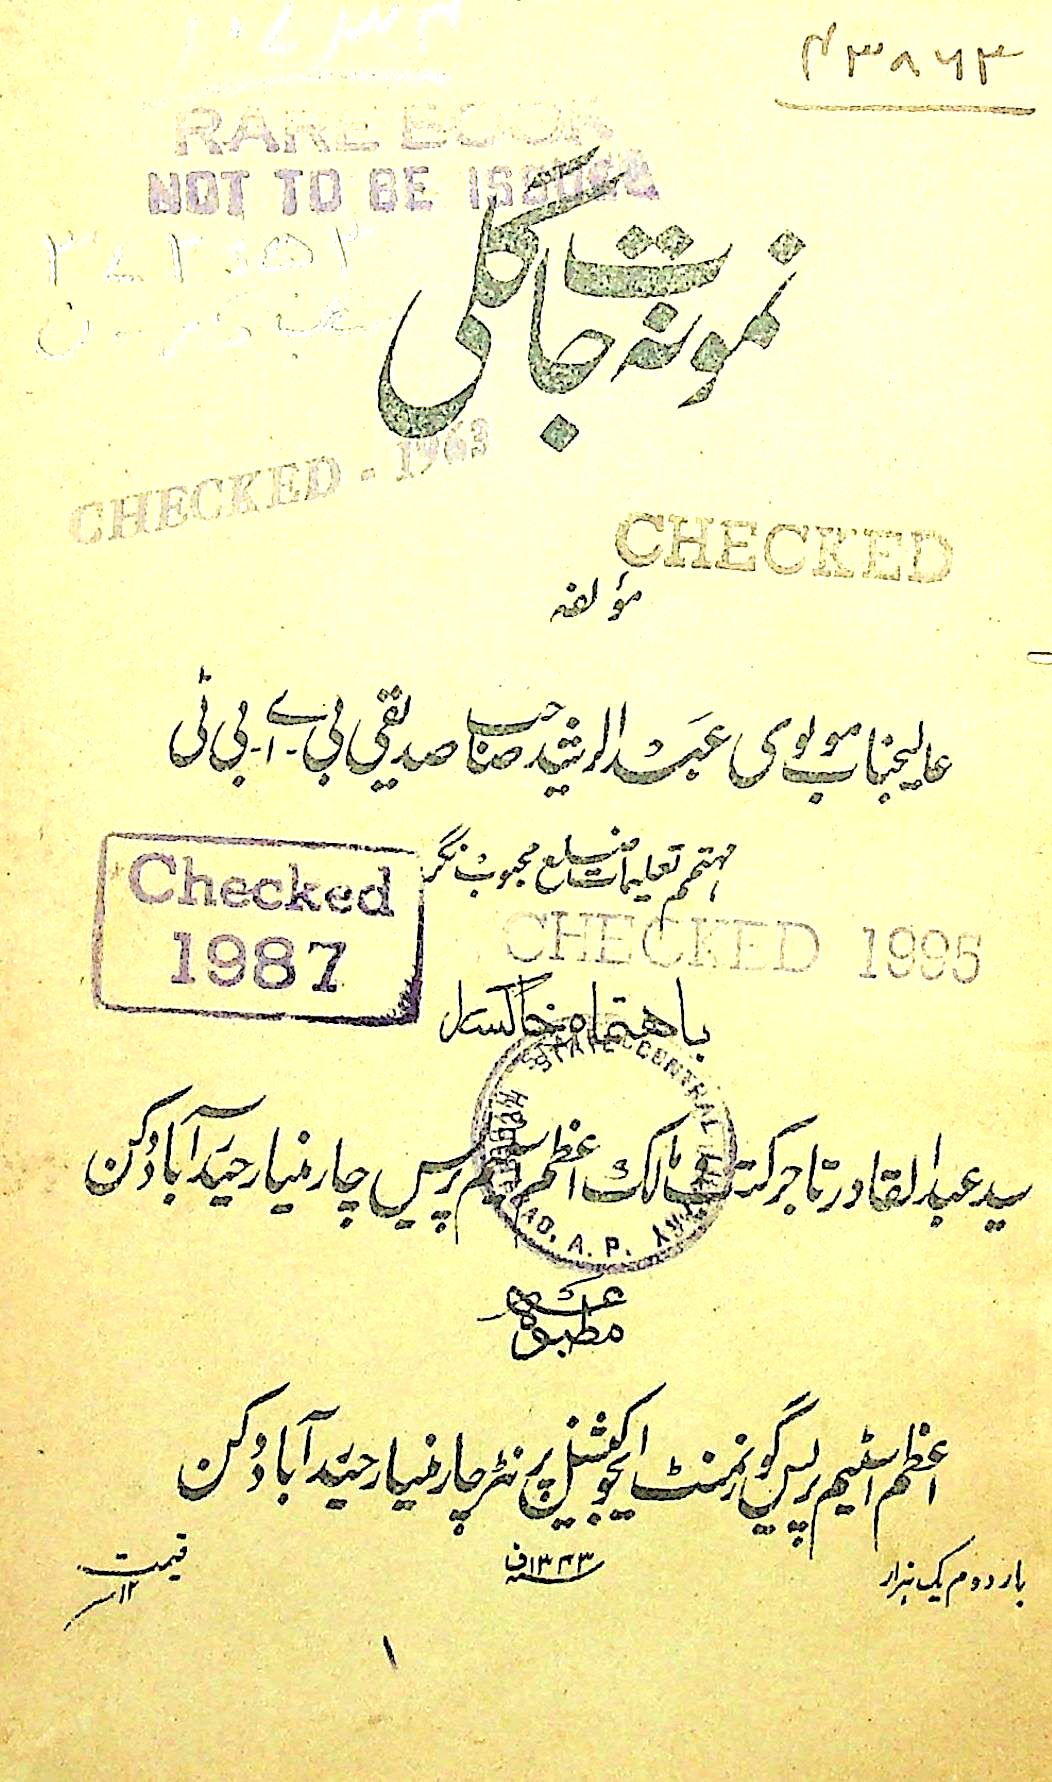 ۴۳۸۶۳
RARE BOOK
NOT TO BE ISSUED
نمونہ جات جنگلی
CHECKED - 1963
CHECKED
مؤلفہ
عالیجناب مولوی عبدالرشید صاحب صدیقی بی۔اے۔بی ٹی
مہتمم تعلیمات ضلع محبوب نگر
Checked
1987
CHECKED 1995
باہتمام خاکسار
STATE CENTRAL
A. P.
سید عبدالقادر تاجر کتب مالک اعظم اسٹیم پریس چارمینار حیدرآباد دکن
مطبوعہ
اعظم اسٹیم پریس گورنمنٹ ایجوکیشنل پرنٹر چارمینار حیدرآباد دکن
بار دوم یک ہزار
۱۳۴۳ف
قیمت ۱۲؍
۱